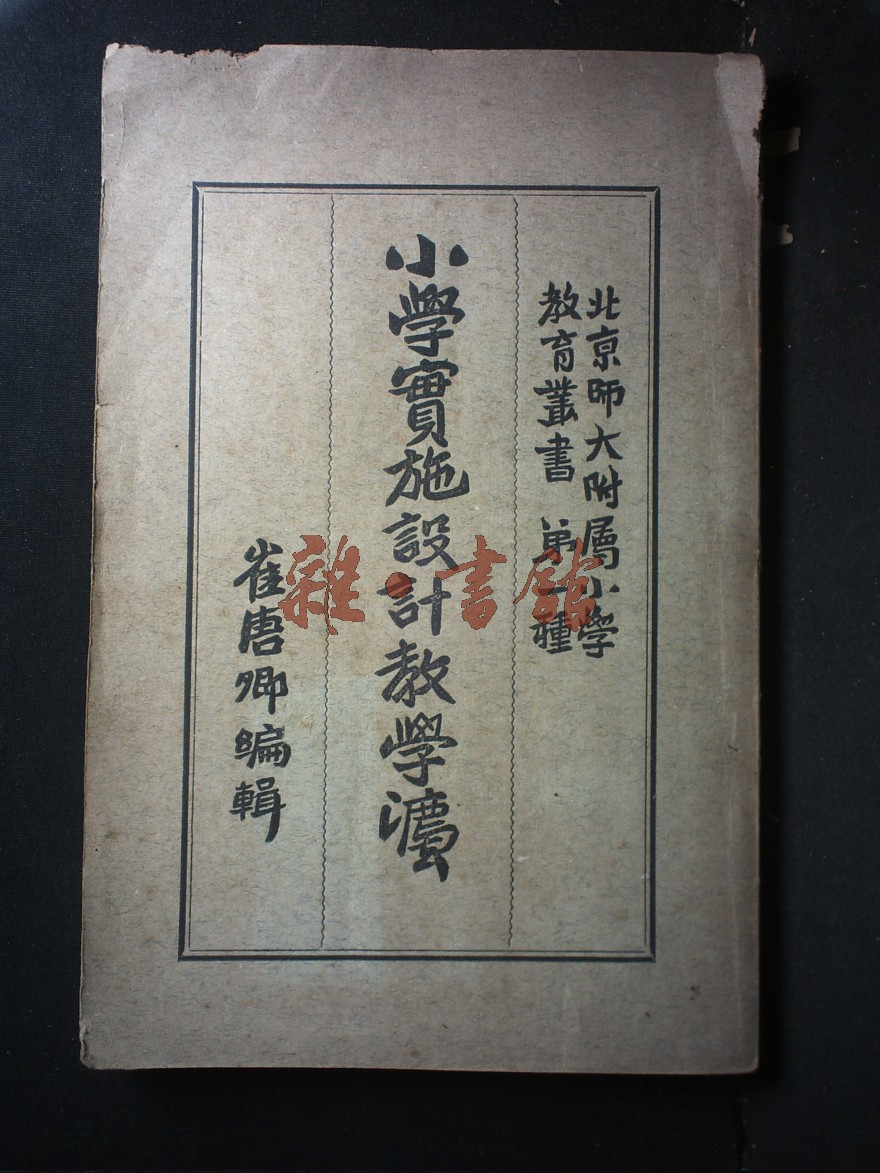 北京師大附屬小學
教育叢書 第 種
小學實施設計教學灋
崔唐卿編輯
雜·書館